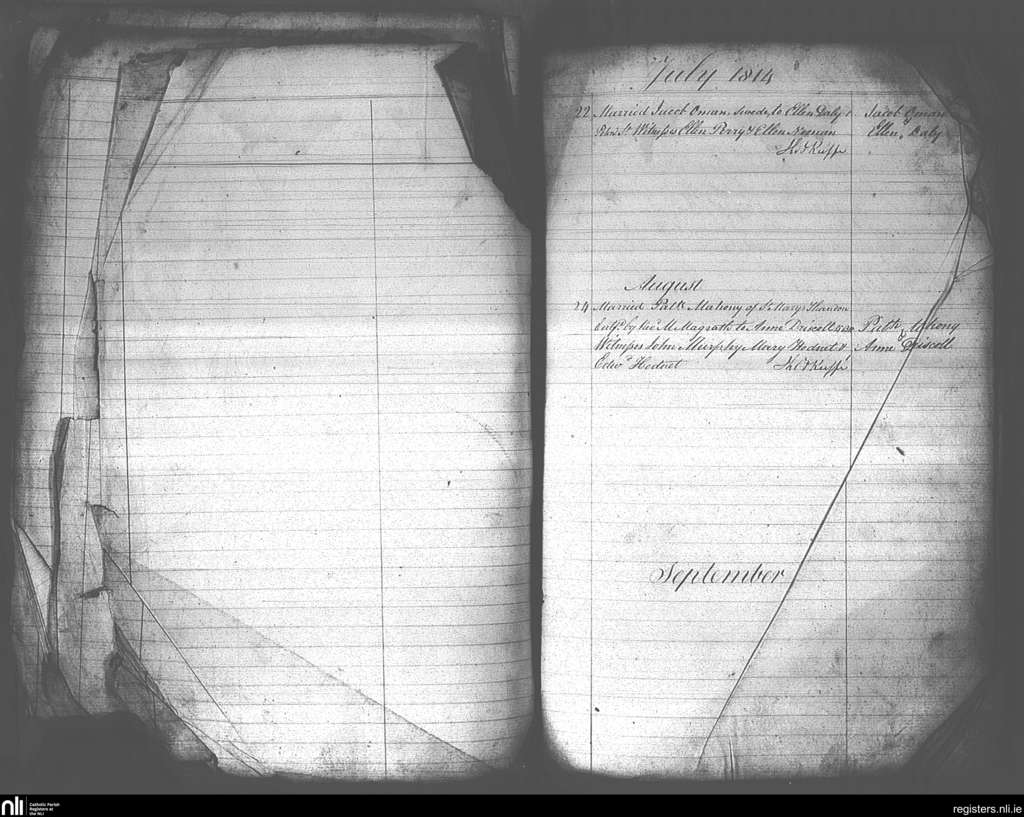 July 1814
22 Married Jacob Oman Swede to Ellen Daly
Witnesses Ellen Perry & Ellen Noonan
Jacob Oman
&
Ellen Daly
August
24 Married Patk Mahony of St Mary Shandon
by Revd M Magrath to Anne Driscoll
Witnesses John Murphy Mary Hednet &
Edwd Hednet
Patk Mahony
&
Anne Driscoll
September
nli Catholic Parish
Registers at
the NLI
registers.nli.ie